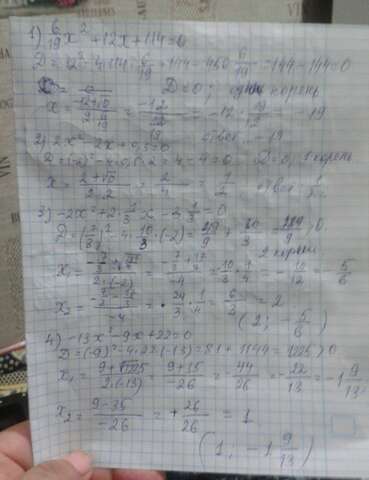 1) 6/19 x² + 12x + 114 = 0
D = 12² - 4·114· 6/19 = 144 - 456· 6/19 = 144 - 144 = 0
D = 0; корень
x = -12+0 / 2· 6/19 = -12 / 12/19 = -12 · 19/12 = -19
ответ: -19
2) 2x² - 2x + 0,5 = 0
D = (-2)² - 4·0,5·2 = 4 - 4 = 0 D = 0, 1 корень
x = 2+√0 / 2·2 = 2/4 = 1/2 ответ: 1/2
3) -2x² + 2 1/3 x - 3 1/3 = 0
D = (7/3)² - 4· 10/3 ·(-2) = 49/9 + 80/3 = 289/9 > 0
2 корня
x₁ = / 2·(-2) = -7/3 + 17/3 / -4 = 10/3 · 1/4 = - 10/12 = - 5/6
x₂ = / -4 = 24/3 · 1/4 = 6/3 = 2
(2; - 5/6)
4) -13x² - 9x + 22 = 0
D = (-9)² - 4·22·(-13) = 81 + 1144 = 1225 > 0
x₁ = 9+√1225 / 2·(-13) = 9+35 / -26 = 44/26 = - 22/13 = -1 9/13
x₂ = 9-35 / -26 = + 26/26 = 1
(1; -1 9/13)